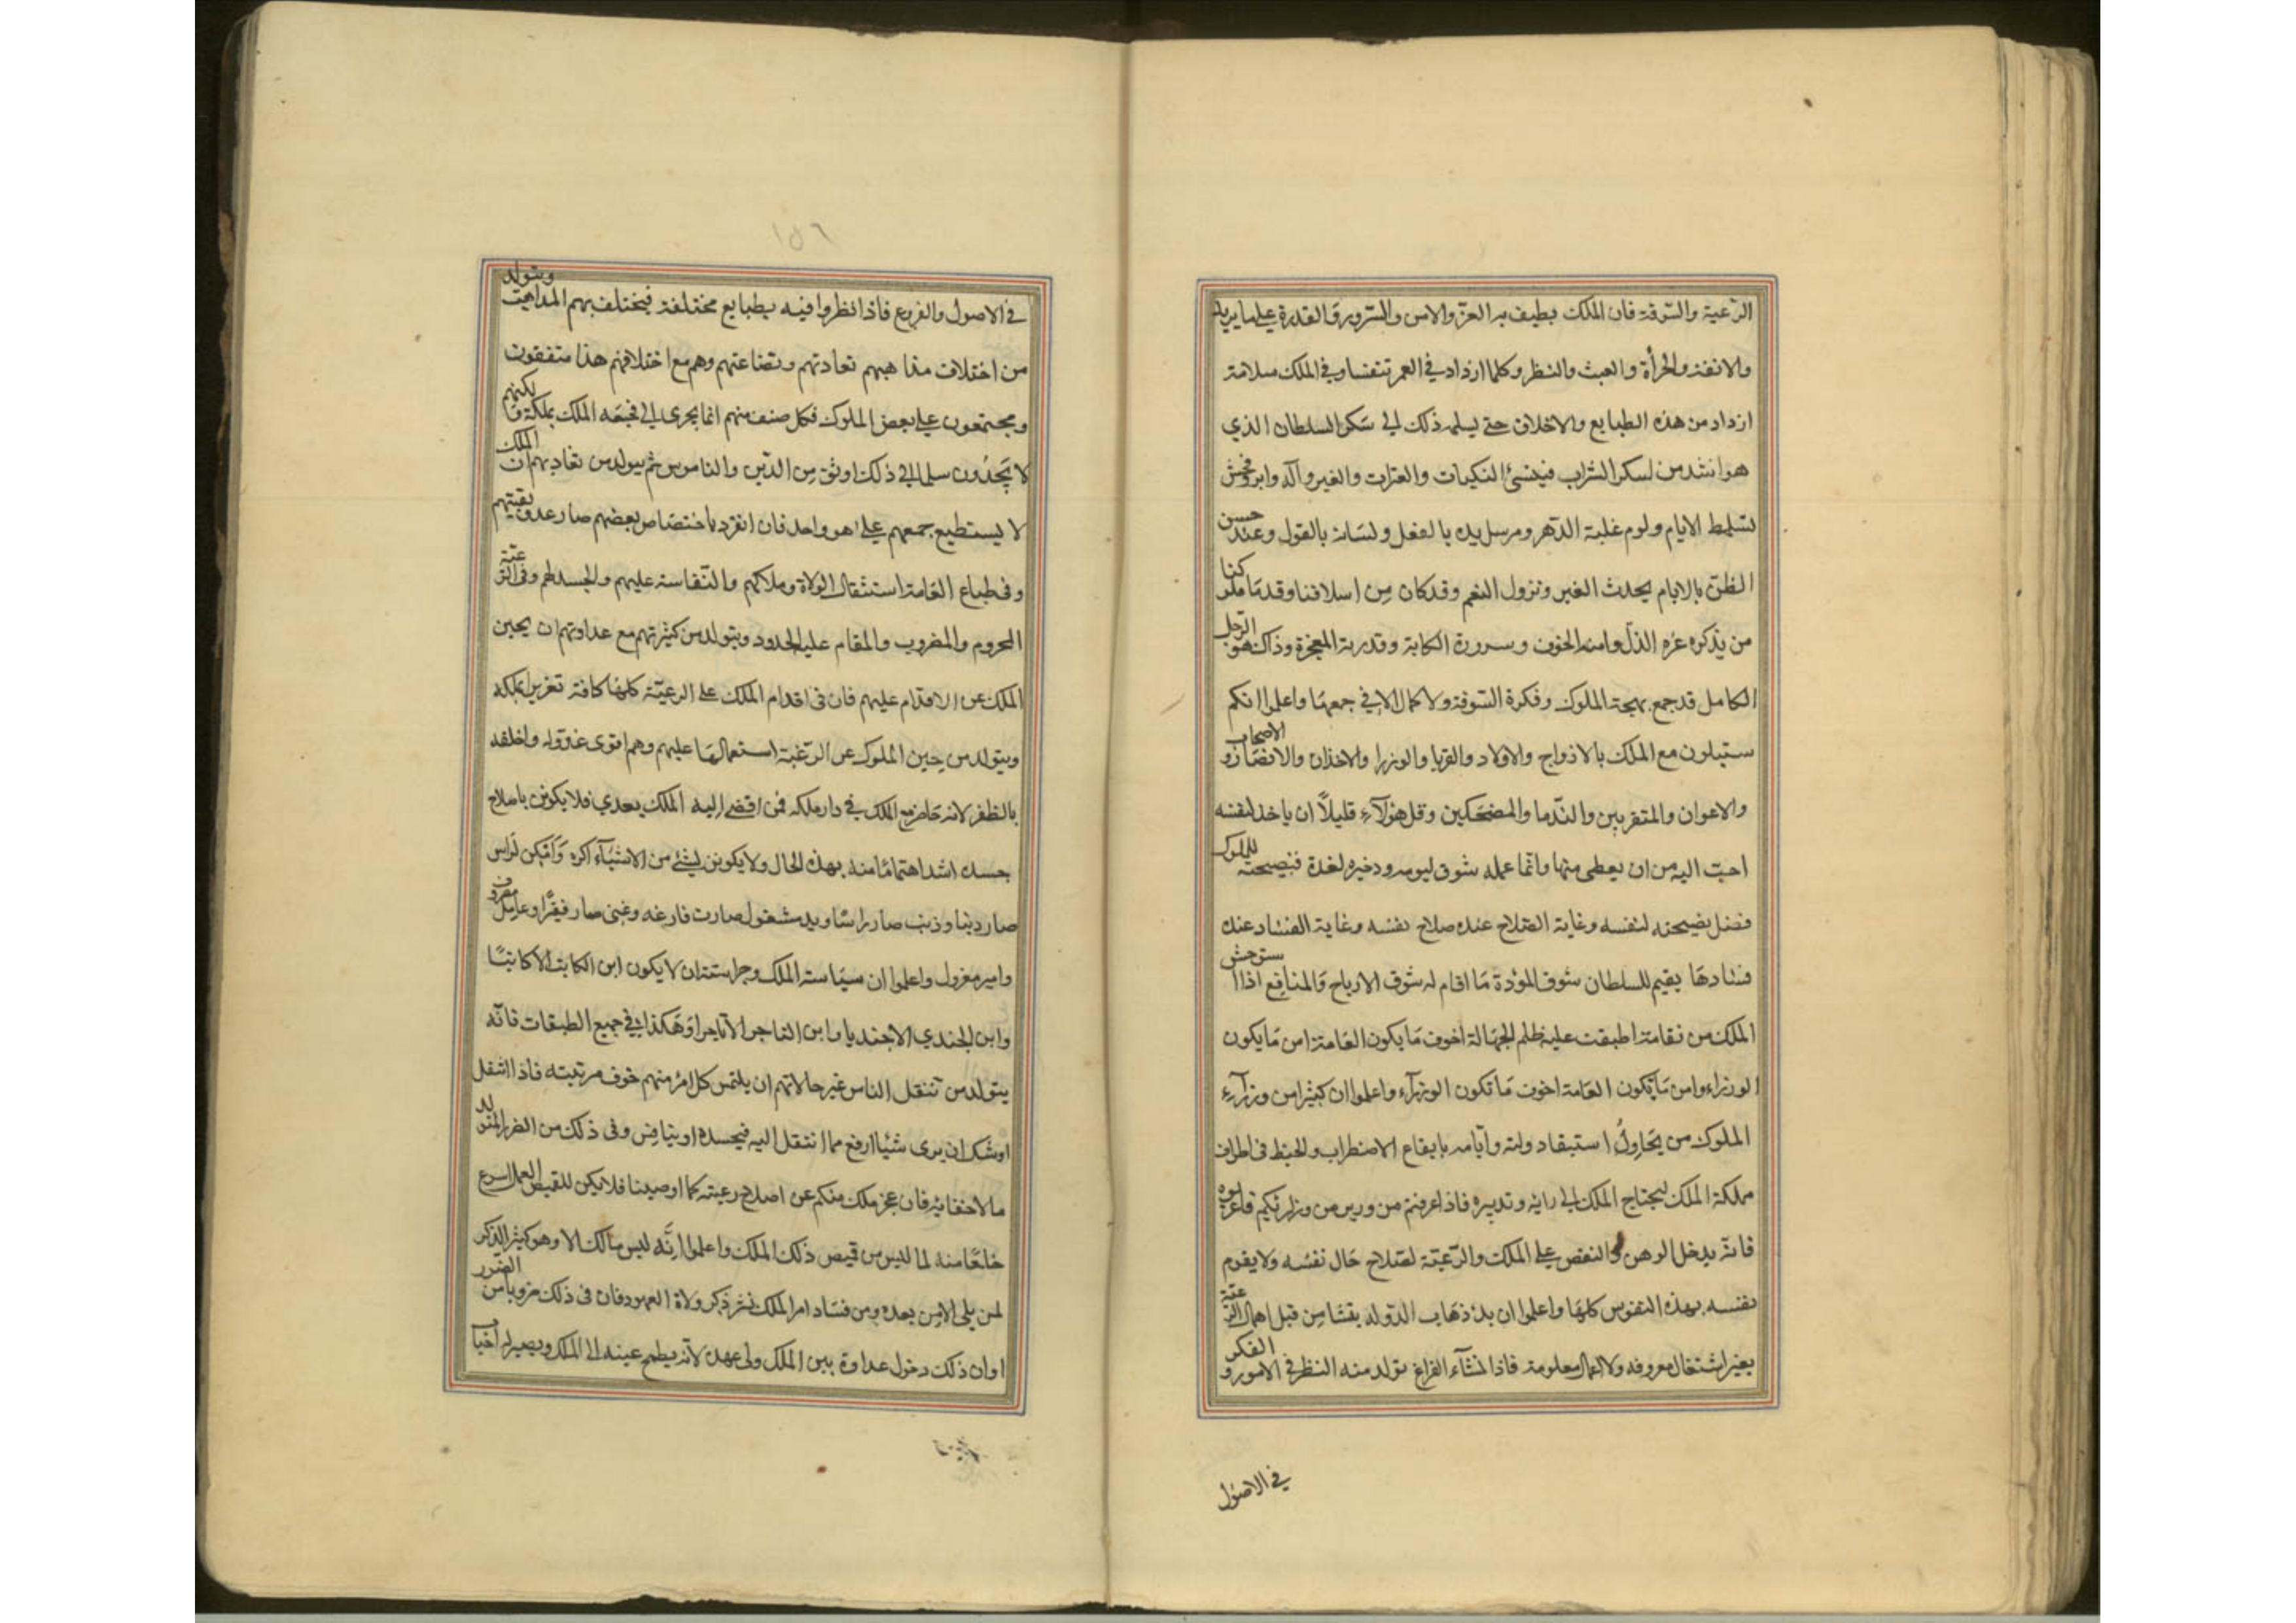 الرّعية والسّوقة فان الملك يطيف به العزّ والامن والسّرور والقدرة على ما يريد
والانفة والجرأة والعبث والنظر وكلما ازداد في العمر تنفسا وفي الملك سلامة
ازداد من هذه الطبايع والاخلاق حتى يسلمه ذلك الى سكر السلطان الذي
هو اشد من سكر الشراب فينسئ النكبات والعثرات والغير والد وابر وفحش
تسلط الايام ولوم غلبة الدّهر ومرسل يده بالفعل ولسانه بالقول وعند حسن
الظنّ بالايام يحدث الغير وتزول النعم وقد كان من اسلافنا وقدما ملوكنا
من يذكره عزه الذلّ وامنه الخوف وسروره الكابة وقدرته المعجزة وذاك هو الرّجل
الكامل قد جمع بهجة الملوك وفكرة السّوقة ولا كمال الا في جمعهما واعلموا انكم
ستبلون مع الملك بالازواج والاولاد والقربا والوزرا والاخذان والانصار و الاصحاب
والاعوان والمتقربين والنّدما والمضحكين وقل هؤلآء قليلاً ان ياخذ لنفسه
احبّ اليه من ان يعطى منها وانّما عمله سوق ليومه وذخيرة لغدة فنصيحته للملوك
فضل نصيحته لنفسه وغاية الصّلاح عنده صلاح نفسه وغاية الفساد عنده
فسادها يقيم للسلطان سوق المودّة ما اقام له سوق الارباح والمنافع اذا استوحش
الملك من ثقاته اطبقت عليه ظلم الجهالة اخوف ما يكون العامة امن ما يكون
الوزراء وامن ما يكون العامة اخوف ما تكون الوزرآء واعلموا ان كثيرا من وزرآء
الملوك من يحاولُ استبقاء دولته وايّامه بايقاع الاضطراب والخبط في اطراف
مملكة الملك ليحتاج الملك الى رايه وتدبيره فاذا عرفتم من وزير من وزارئكم فاعزلوه
فانّه يدخل الوهن والنقص على الملك والرّعيّة لصلاح حال نفسه ولا يقوم
نفسه بهذه النّفوس كلها واعلموا ان بدء ذهاب الدّولة ينشا من قبل اهمال الرّعيّة
بغير اشتغال معروفه ولا اعمال معلومة فاذا نشآء الفراغ تولد منه النظر في الامور و الفكر
في الاصول
١٥٦
في الاصول والفروع فاذا نظروا فيه بطبايع مختلفة فيختلف بهم المذاهب ويتولد
من اختلاف مذاهبهم تعاديهم وتضاغنهم وهم مع اختلافهم هذا متفقون
ومجتمعون على بعض الملوك فكل صنف منهم انما يجرى الى فجيعه الملك بملكه ولكنهم
لا يَجدُون سلما الى ذلك اوثق مِن الدّين والناموس ثم يتولد من تعاديهم ان الملك
لا يستطيع جمعهم على هو واحد فان انفرد باختصاص بعضهم صار عدو بقيتهم
وفي طباع العامة استثقال الولاة وملالهم والنّفاسة عليهم والحسد لهم وفي الرّعيّة
المحروم والمضروب والمقام عليه الحدود ويتولد من كثرتهم مع عداوتهم ان يجبن
الملك عن الاقدام عليهم فان في اقدام الملك على الرعيّة كلها كافة تغرير ابملكه
ويتولد من جبن الملوك عن الرّغبة استعمالها عليهم وهم اقوى عدو له واخلفه
بالظفر لانه حاضر مع الملك في دار ملكه فمن افضى اليه الملك بعدي فلا يكونن باصلاح
جسده اشد اهتمامًا منه بهذه الحال ولا يكونن لشئ من الاشيآء اكره وانكر لراس
صار ذنبا وذنب صار راسا ويد مشغول صارت فارغه وغنى صار فقيرًا وعامل مصروف
وامير معزول واعلموا ان سياسة الملك وحراسته ان لا يكون ابن الكاتب الا كاتبًا
وابن الجندي الا جنديا وابن التاجر الا تاجرا وهكذا في جميع الطبقات فانّه
يتولد من تنقل الناس عن حالاتهم ان يلتمس كل امرء منهم فوق مرتبته فاذا انتقل
اوشك ان يرى شيئا ارفع مما انتقل اليه فيحسده او ينافس وفى ذلك من الضرر المتولد
ما لا خفا به فان عجز ملك منكم عن اصلاح رعيته كما اوصينا فلا يكن للقميص العمل اسرع
خلعًا منه لما لبس من قميص ذلك الملك واعلموا انّه ليس مالك الا وهو كثير الذكر
لمن يلى الامر بعده ومن فساد امر الملك نشر ذكر ولاة العهود فان فى ذلك ضروبا من الضرر
اوان ذلك دخول عداوة بين الملك ولى عهده لانّه يطمح عينه الى الملك ويصير له احبآ